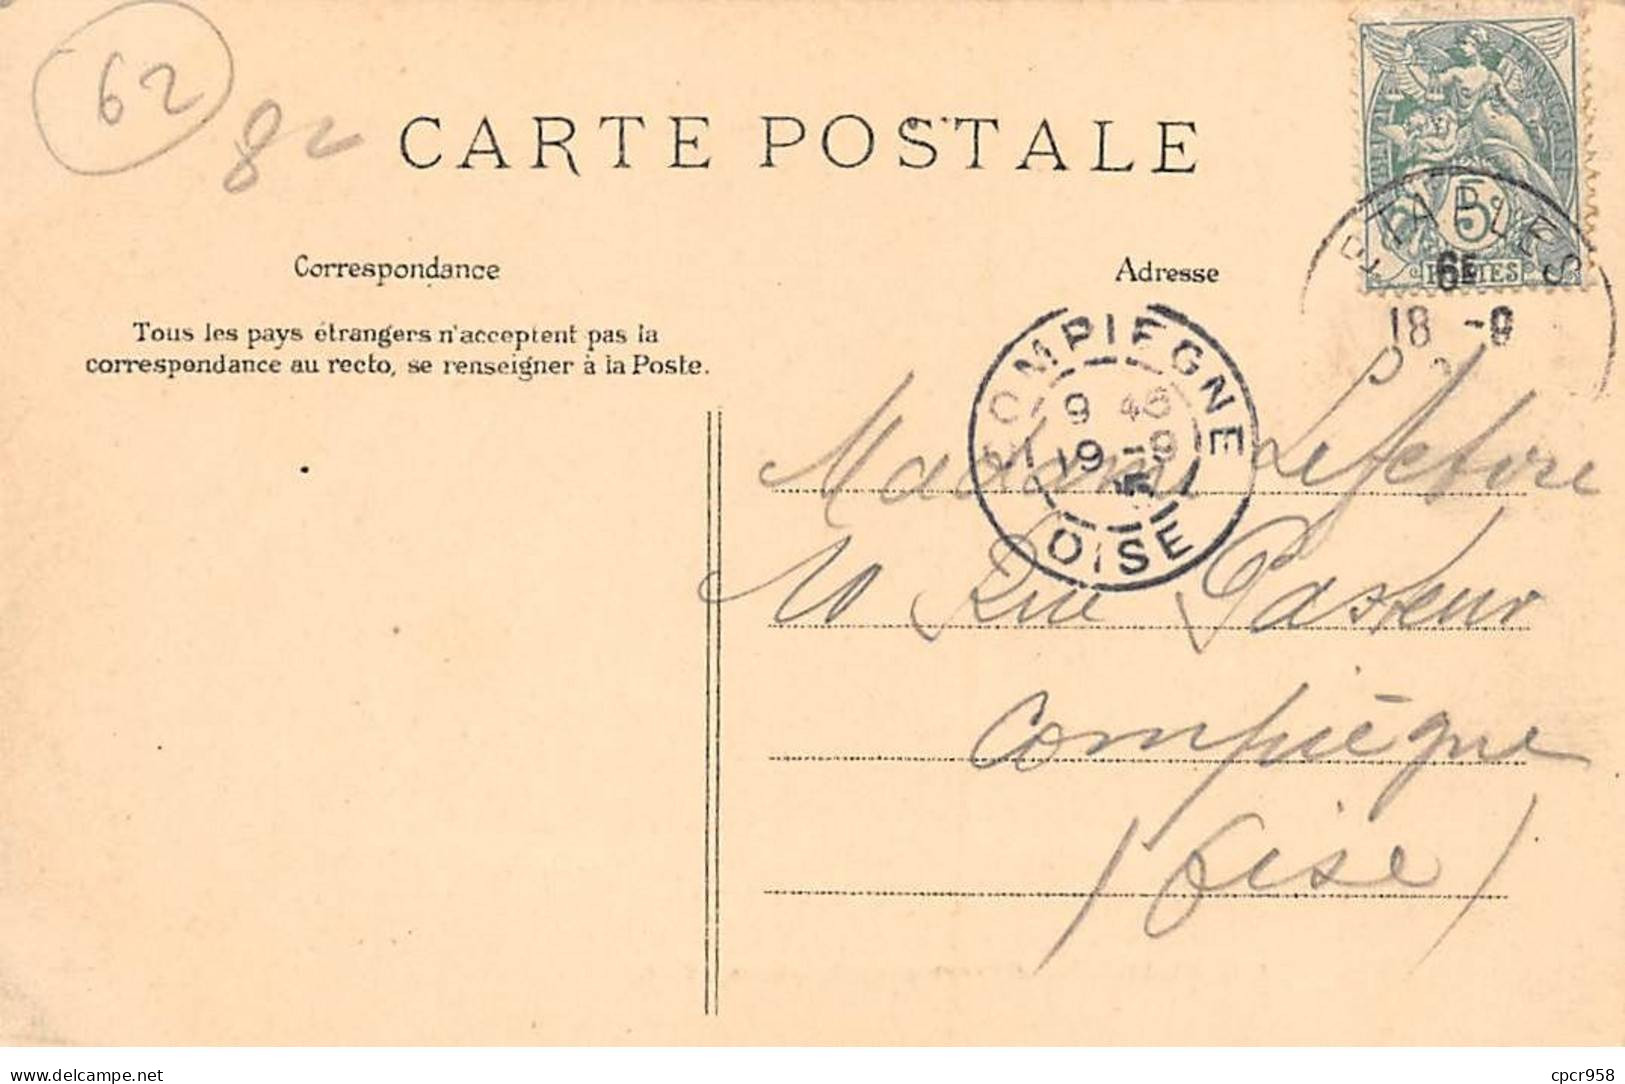 62
CARTE POSTALE
RÉPUBLIQUE FRANÇAISE
5c
POSTES
Correspondance
Adresse
Tous les pays étrangers n'acceptent pas la
correspondance au recto, se renseigner à la Poste.
ETAPLES
6E
18 -9
COMPIEGNE
9 45
19 -9
OISE
Madame Lefebvre
10 Rue Pasteur
Compiègne
(Oise)
delcampe.net
cpcr958